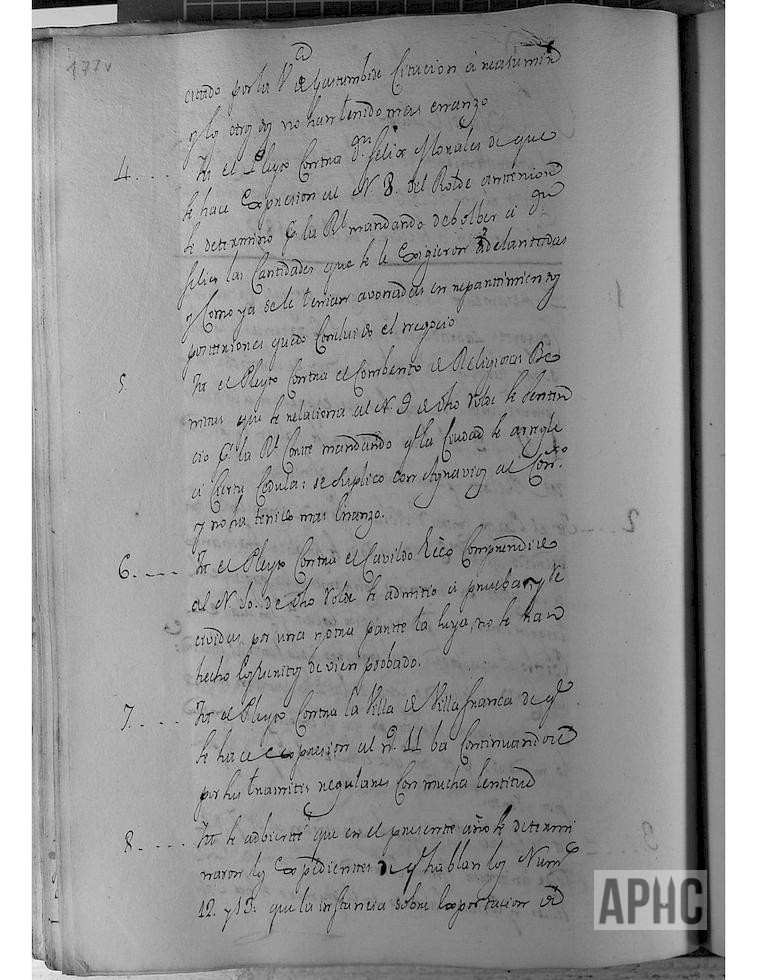 177v
citado por la Vd.ª de Gastumbide Citacion à
y los otros dos no han tenido mas abanzo
4.... Itt el Pleyto Contra dn. Felix Morales de que
se hace Expresion al N. 8. del Rolde
se determinó p. la Rl mandando debolber à dn.
Felix las Cantidades que se le Exigieron adelantadas
y Como ya se le tenian avonadas en repartimientos
posteriores quedo Concluido el negocio
5. Itt el Pleyto Contra el Combento de Religiosas
que se relaciona al N. 9 de dho Rolde se
p. la Rl Corte mandando q.e la Ciudad se arregle
à Cierta Cedula: se suplicó con Agravios al Con.xo
y no ha tenido mas abanzo.
6.... Itt el Pleyto Contra el Cavildo Ecco Comprendido
al N. 10. de dho Rolde se admitio à prueba, y
por una y otra parte la suya, no se han
hecho de vien probado.
7.... Itt el Pleyto Contra la Villa de Villafranca de q.e
se hace expresion al n.º 11 ba Continuandose
por sus tramites regulares Con mucha lentitud
8..... Itt se adbierte que en el presente año se determi
naron los Expedientes de q.e hablan los Num.s
12. y 13. que la instancia sobre exportacion de
APHC